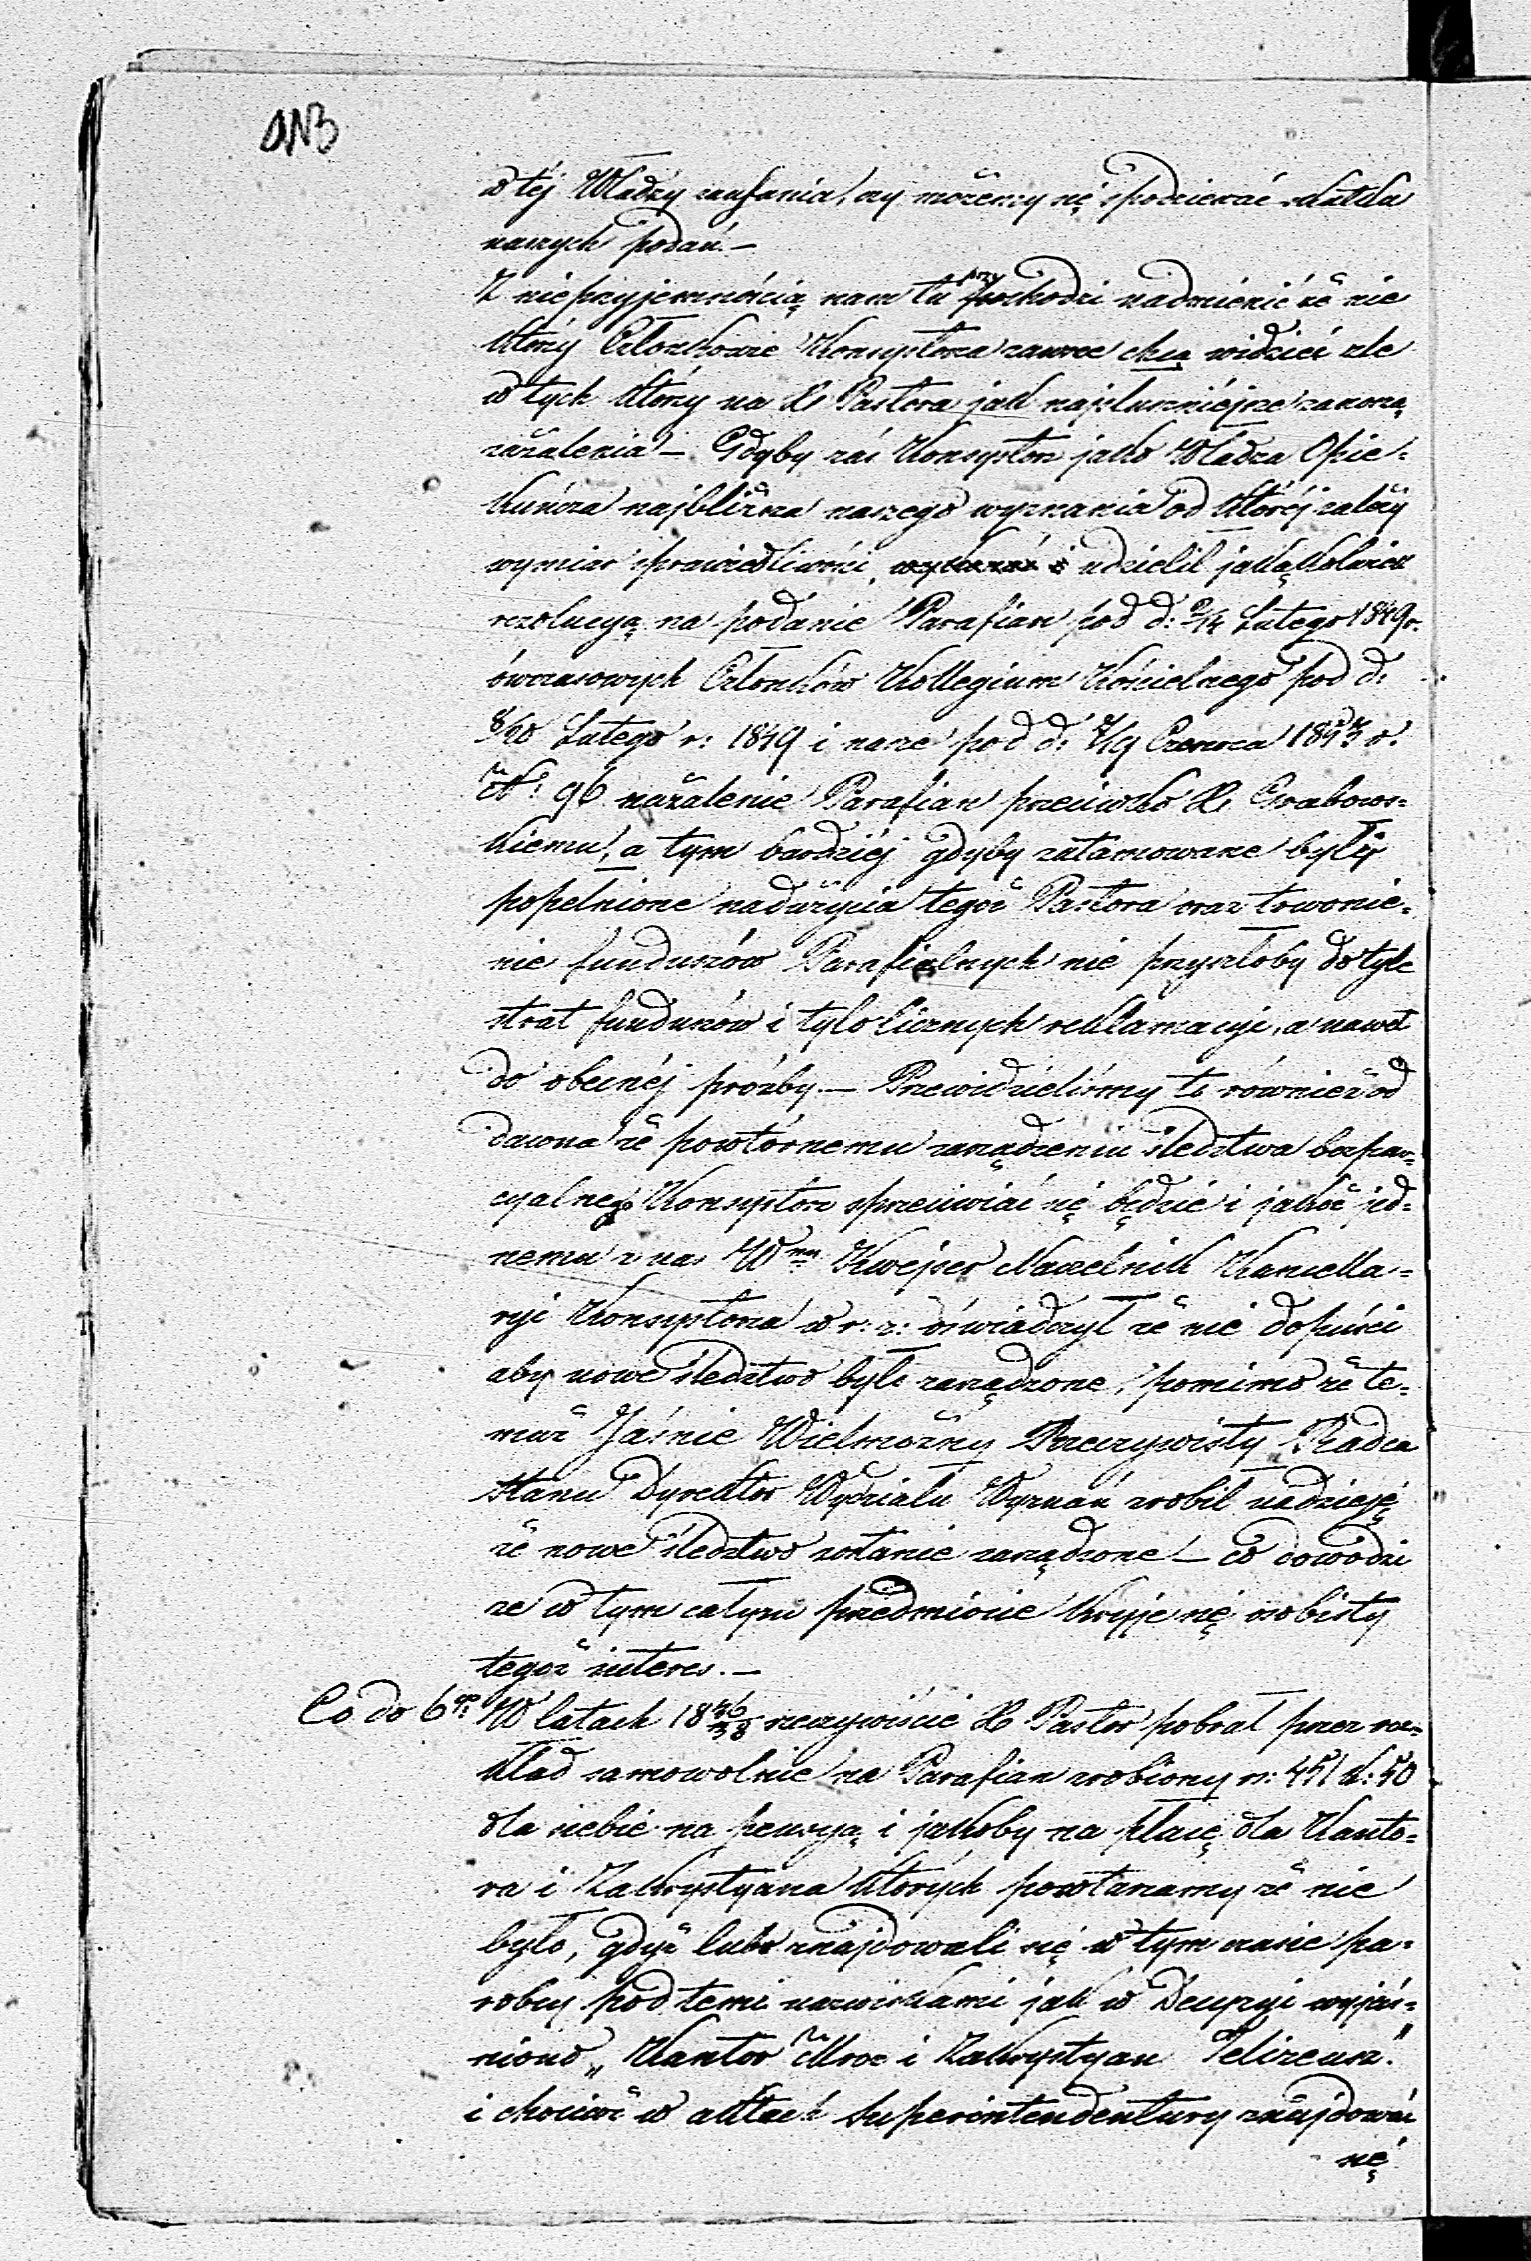 w téj Władzy zaufania, czy możemy się spodziewać skutku
naszych podań. —
Z nieprzyjemnością nam tu przychodzi nadmienić że nie
którzy Członkowie Konsystorza zawsze chcą widzieć złe
w tych którzy na X. Pastora jak najsłuszniéjsze zanoszą
zażalenia — Gdyby zaś Konsystorz jako Władza Opie=
kuńcza najbliższa naszego wyznania od któréj zależy
wymiar sprawiedliwości, udzielił jakąkolwiek
rezolucyą na podanie Parafian pod d: 2/14 Lutego 1849 r.
ówczasowych Członków Kollegium Kościelnego pod d:
8/20 Lutego r: 1849 i nasze pod d: 7/19 Czerwca 1853 r.
N: 96 zażalenie Parafian przeciwko X. Grabows=
kiemu, a tym bardziéj gdyby zatamowane były
popełnione nadużycia tegoż Pastora oraz trwonie=
nie funduszów Parafialnych nie przyszłoby do tyle
strat funduszów i tylo licznych reklamacyi, a nawet
do obecnéj prośby. — Przewidzieliśmy to również od
dawna że powtórnemu zarządzeniu śledztwa bezpar=
cyalnego Konsystorz sprzeciwiać się będzie i jakoż jed=
nemu z nas Wny Kwejser Naczelnik Kancella=
ryi Konsystorza w r: z: oświadczył że nie dopuści
aby nowe śledztwo było zarządzone, pomimo że te=
muż Jaśnie Wielmożny Rzeczywisty Radca
Stanu Dyrektor Wydziału Wyznań zrobił nadzieję
że nowe śledztwo zostanie zarządzone — co dowodzi
że w tym całym przedmiocie kryje się osobisty
tegoż interes. —
Co do 6go W latach 1836/38 rzeczywiście X Pastor pobrał przez roz=
kład samowolnie na Parafian zrobiony rs: 451 k: 50
dla siebie na pensyą i jakoby na płacę dla Kanto=
ra i Zakrystyana których powtarzamy że nie
było, gdyż lubo znajdowali się w tym czasie pa=
robcy pod temi nazwiskami jak w Decyzyi wyjaś=
niono „Kantor Mroz i Zakrystyan Felizeusz"
i chociaż w aktach Superintendentury znajdować
się